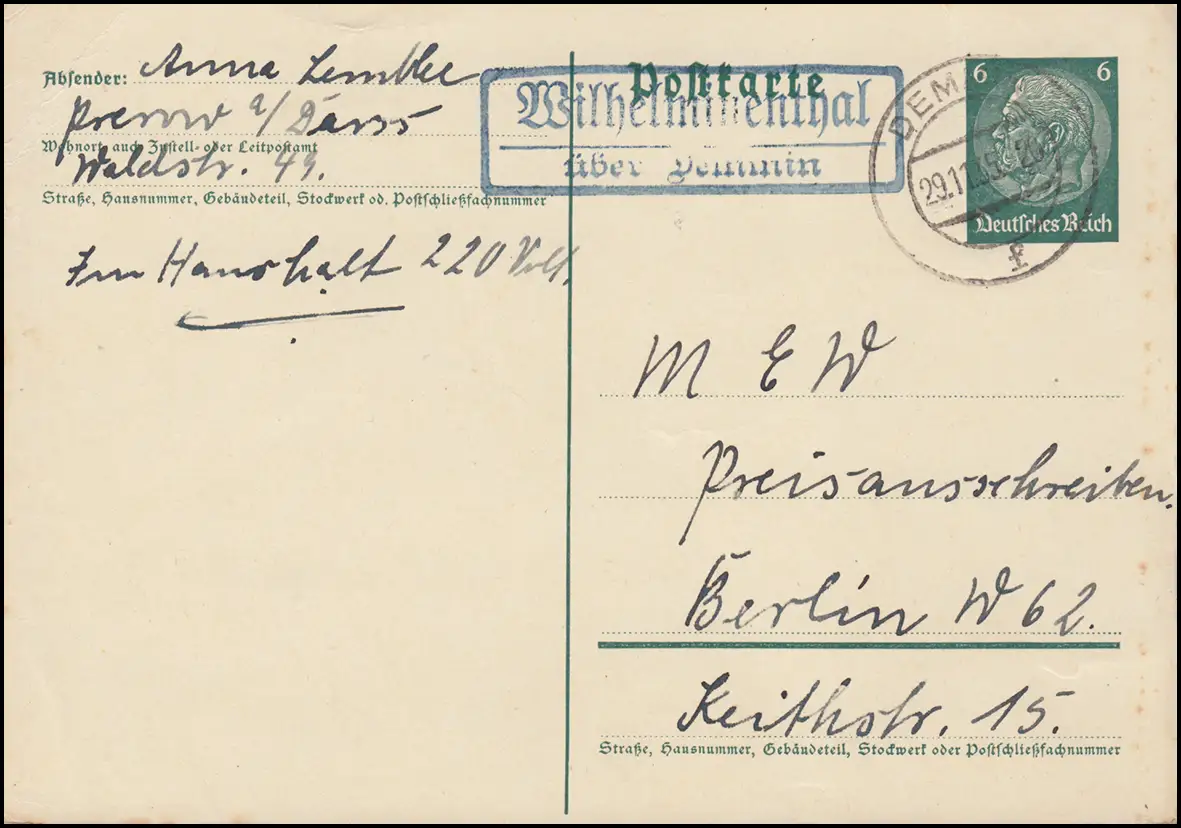 Absender: Anna Lembke
Prerow a/Darss
Wohnort, auch Zustell- oder Leitpostamt
Waldstr. 49.
Straße, Hausnummer, Gebäudeteil, Stockwerk od. Postschließfachnummer
Im Haushalt 220 Volt.
Postkarte
Wilhelminenthal
über Demmin
6 6
Deutsches Reich
29.11.35
M E W
Preisausschreiben.
Berlin W 62.
Keithstr. 15.
Straße, Hausnummer, Gebäudeteil, Stockwerk oder Postschließfachnummer